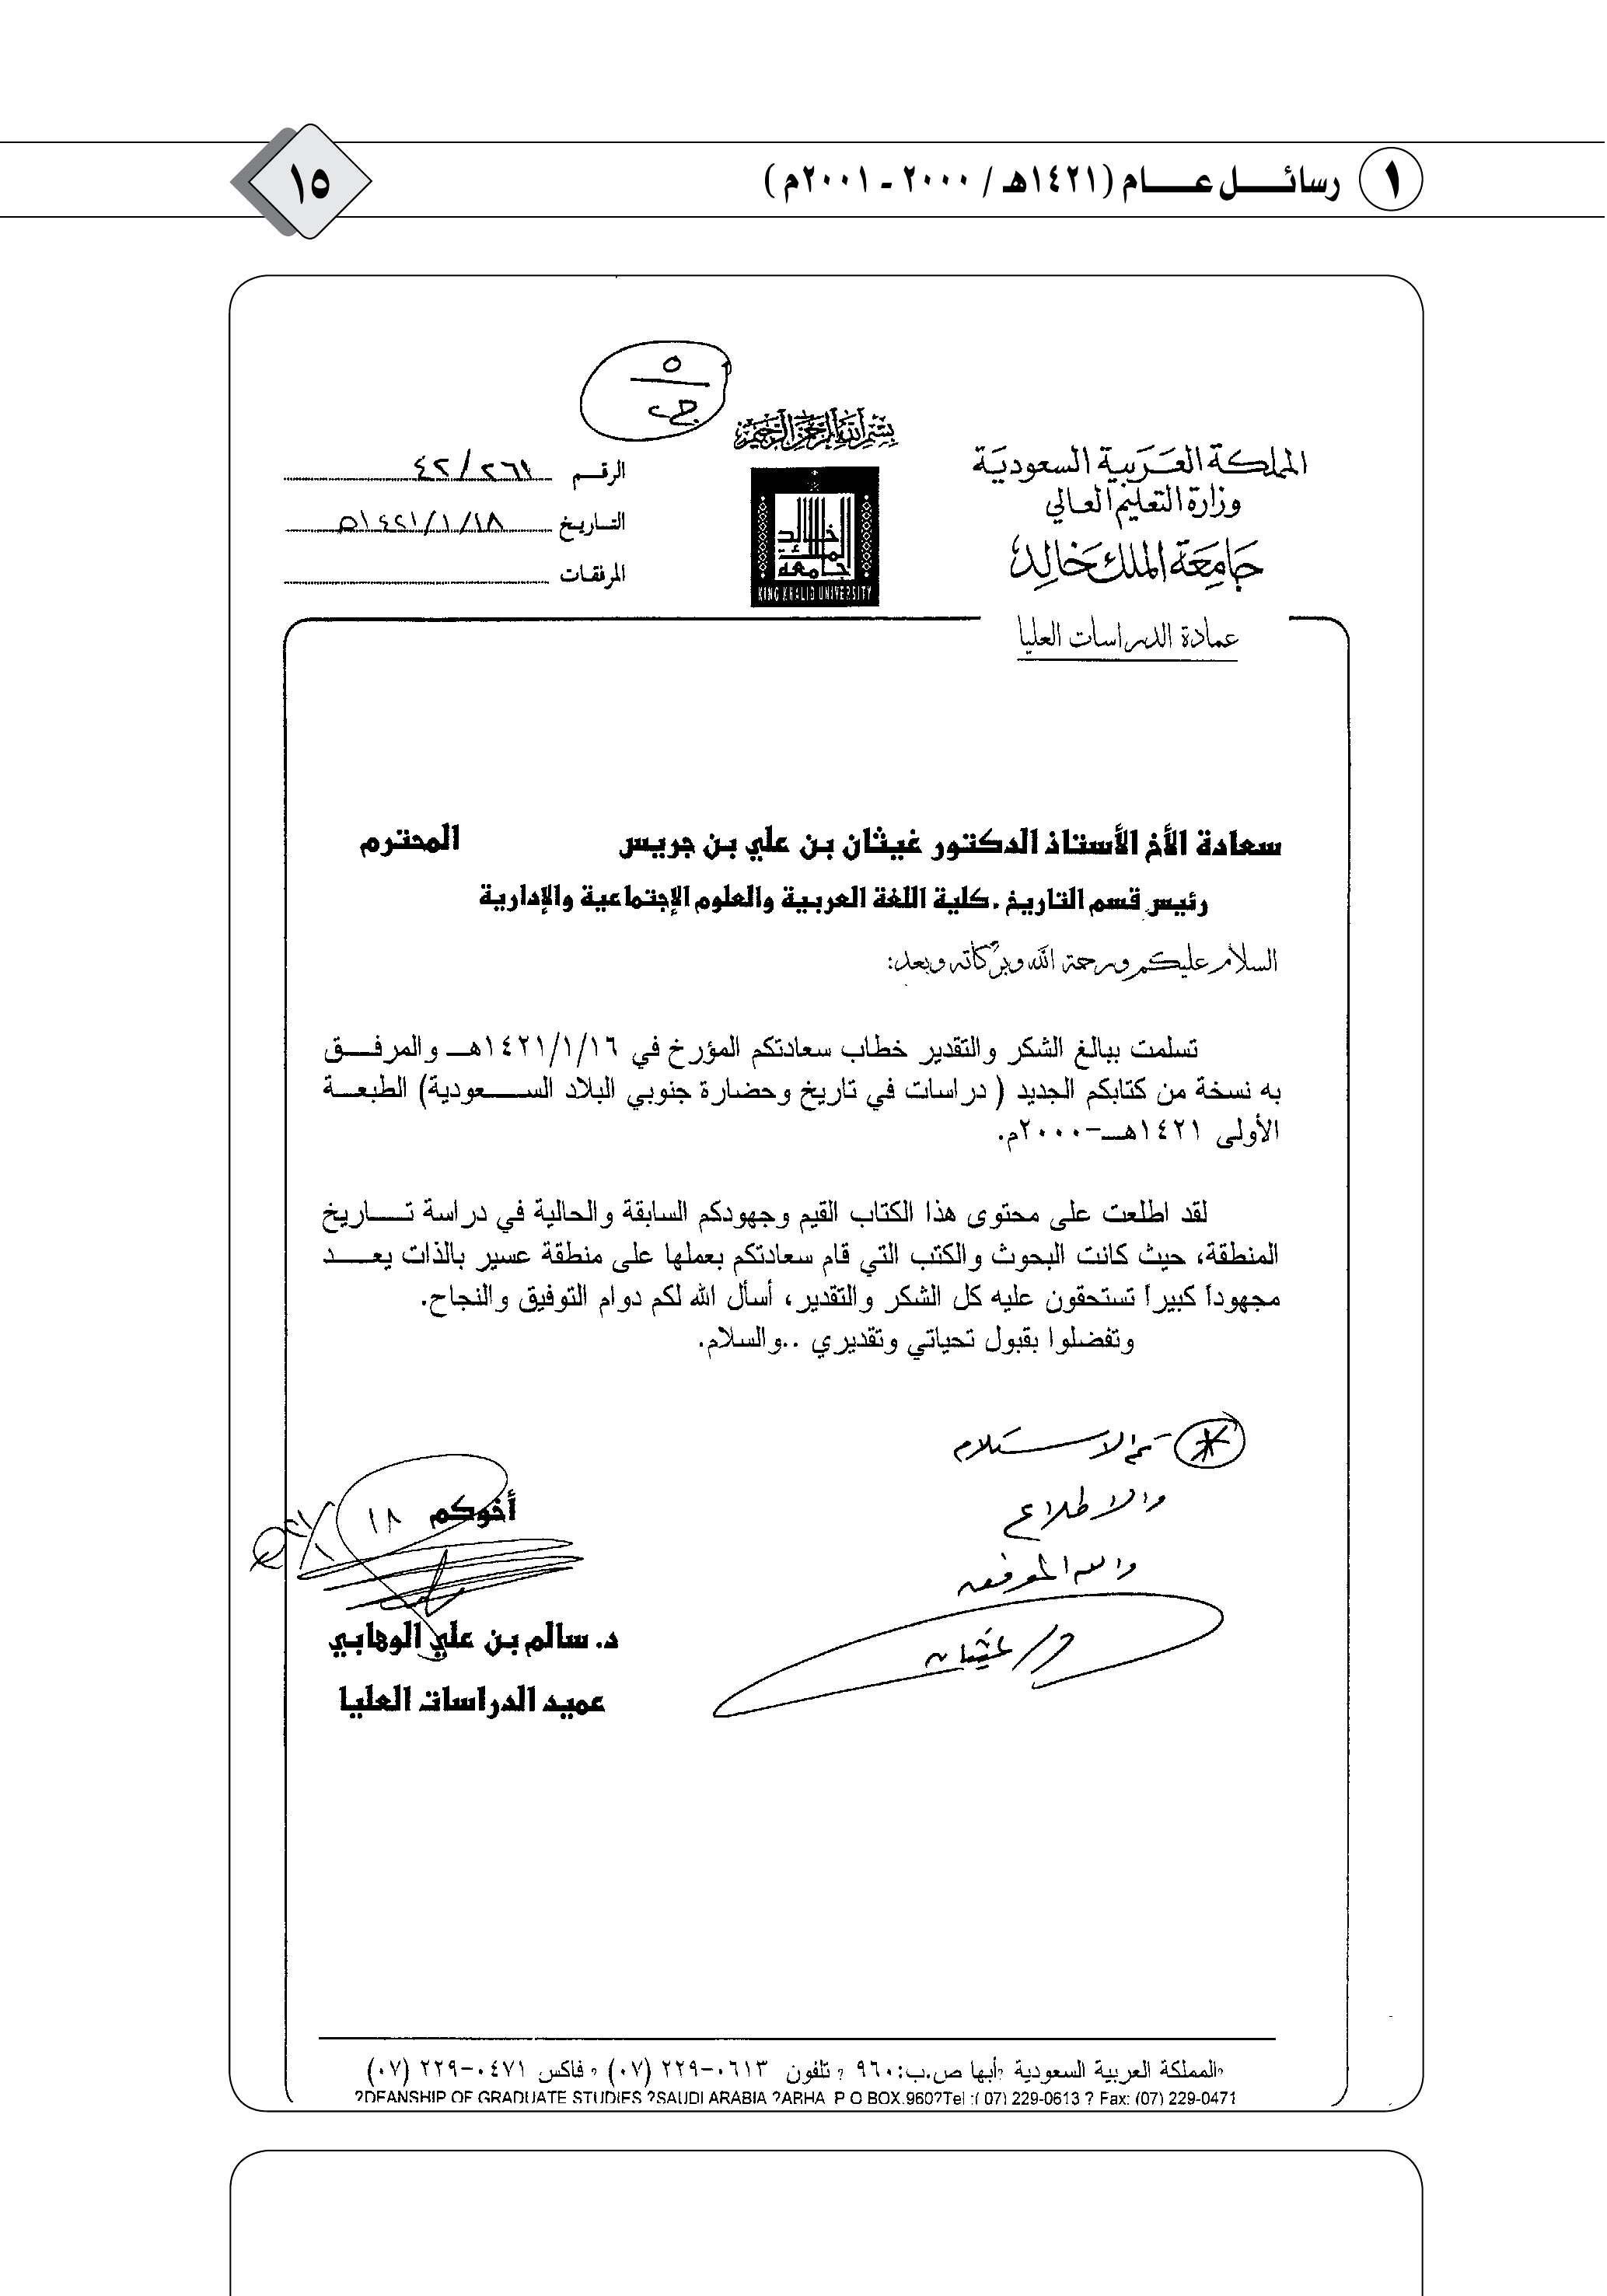 ١ رسائل عام (١٤٢١هـ / ٢٠٠٠ - ٢٠٠١م)
١٥
٥
ج
بسم الله الرحمن الرحيم
المملكة العربية السعودية
وزارة التعليم العالي
جامعة الملك خالد
عمادة الدراسات العليا
جامعة الملك خالد
KING KHALID UNIVERSITY
الرقم ٤٢/٢٦١
التاريخ ١٤٢١/١/١٨ھ
المرفقات
سعادة الأخ الأستاذ الدكتور غيثان بن علي بن جريس المحترم
رئيس قسم التاريخ .كلية اللغة العربية والعلوم الإجتماعية والإدارية
السلام عليكم ورحمة الله وبركاته وبعد:
تسلمت ببالغ الشكر والتقدير خطاب سعادتكم المؤرخ في ١٤٢١/١/١٦هـ والمرفق
به نسخة من كتابكم الجديد ( دراسات في تاريخ وحضارة جنوبي البلاد السعودية) الطبعة
الأولى ١٤٢١هـ-٢٠٠٠م.
لقد اطلعت على محتوى هذا الكتاب القيم وجهودكم السابقة والحالية في دراسة تاريخ
المنطقة، حيث كانت البحوث والكتب التي قام سعادتكم بعملها على منطقة عسير بالذات يعد
مجهوداً كبيراً تستحقون عليه كل الشكر والتقدير، أسأل الله لكم دوام التوفيق والنجاح.
وتفضلوا بقبول تحياتي وتقديري ..والسلام.
* تم الاستلام
والاطلاع
والله الموفق
د/ غيثان
أخوكم
١٨
د. سالم بن علي الوهابي
عميد الدراسات العليا
?المملكة العربية السعودية ?أبها ص.ب:٩٦٠ ? تلفون ٠٦١٣-٢٢٩ (٠٧) ? فاكس ٠٤٧١-٢٢٩ (٠٧)
?DEANSHIP OF GRADUATE STUDIES ?SAUDI ARABIA ?ABHA P O BOX.960?Tel :( 07) 229-0613 ? Fax: (07) 229-0471